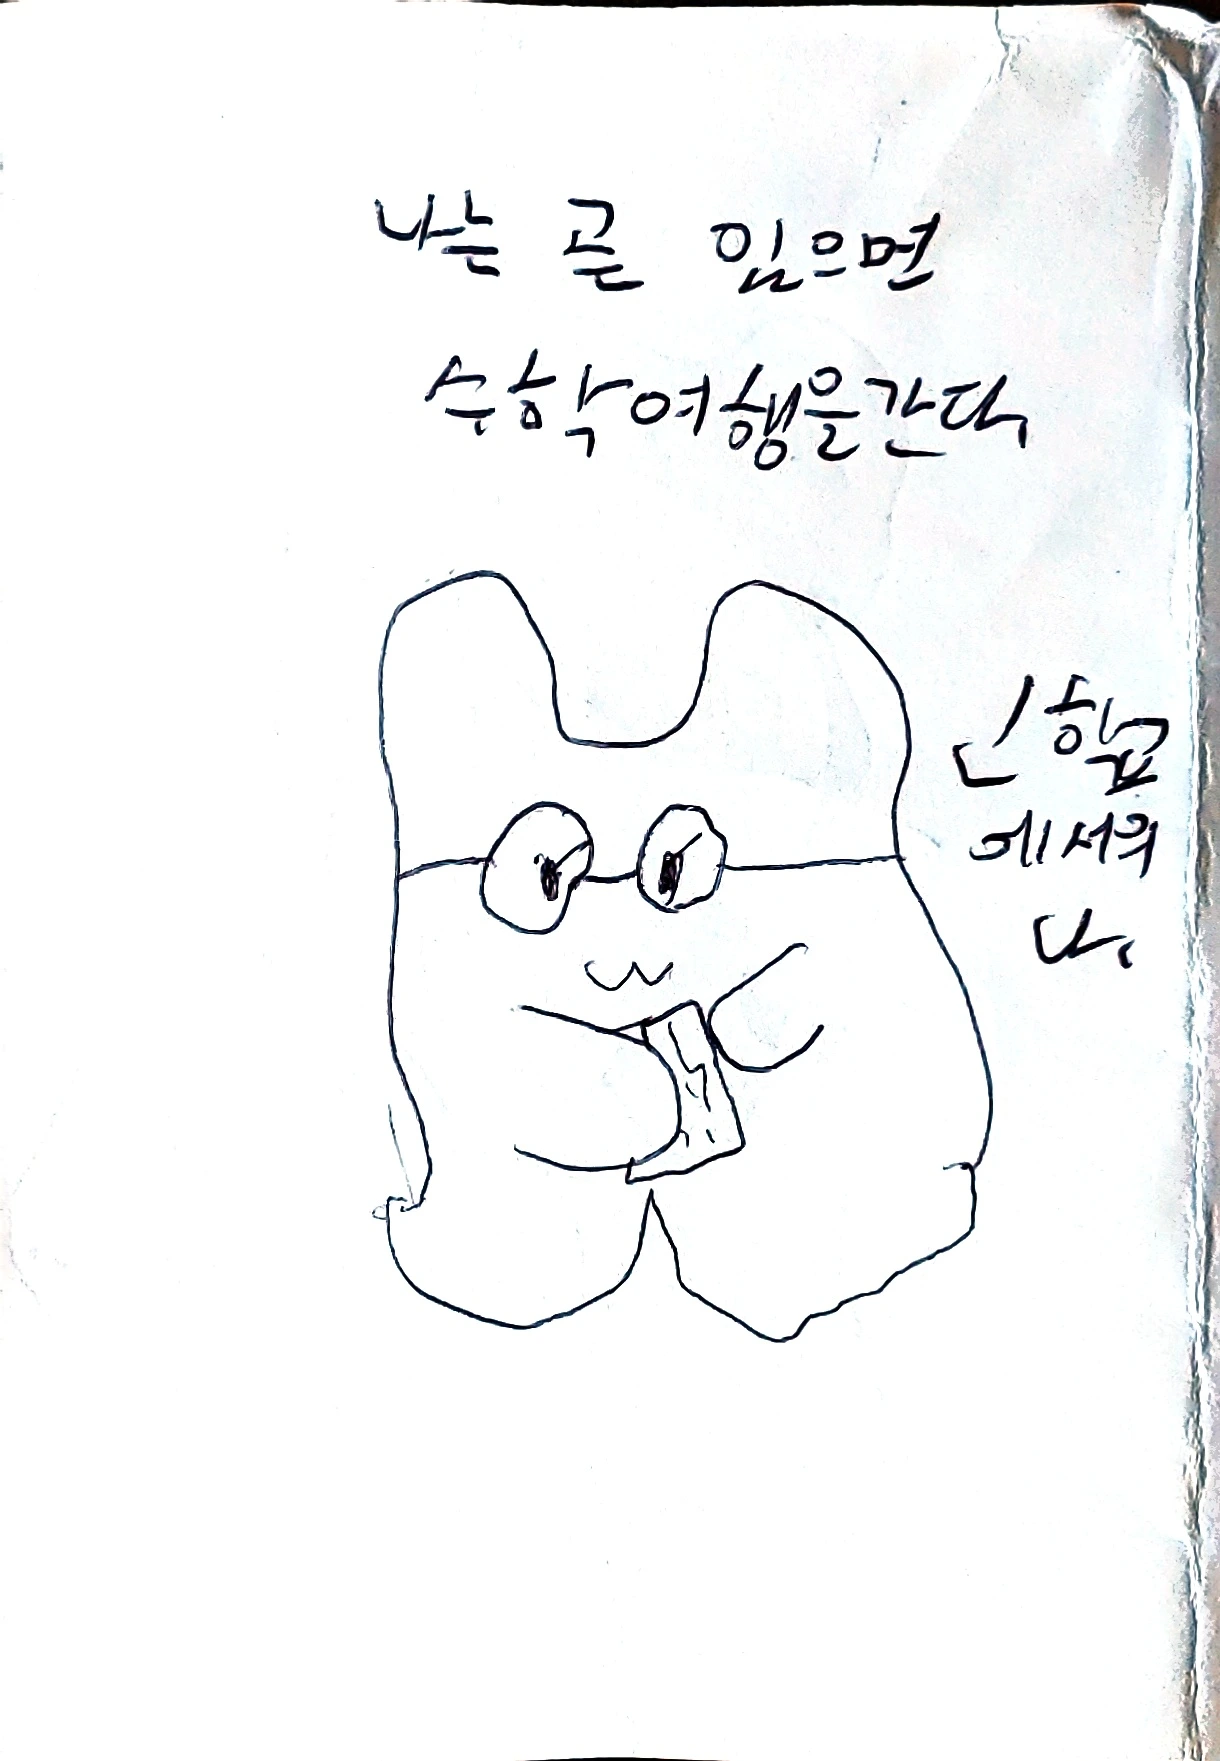 나는 곧 있으면
수학여행을간다.
학교
에서의
나.